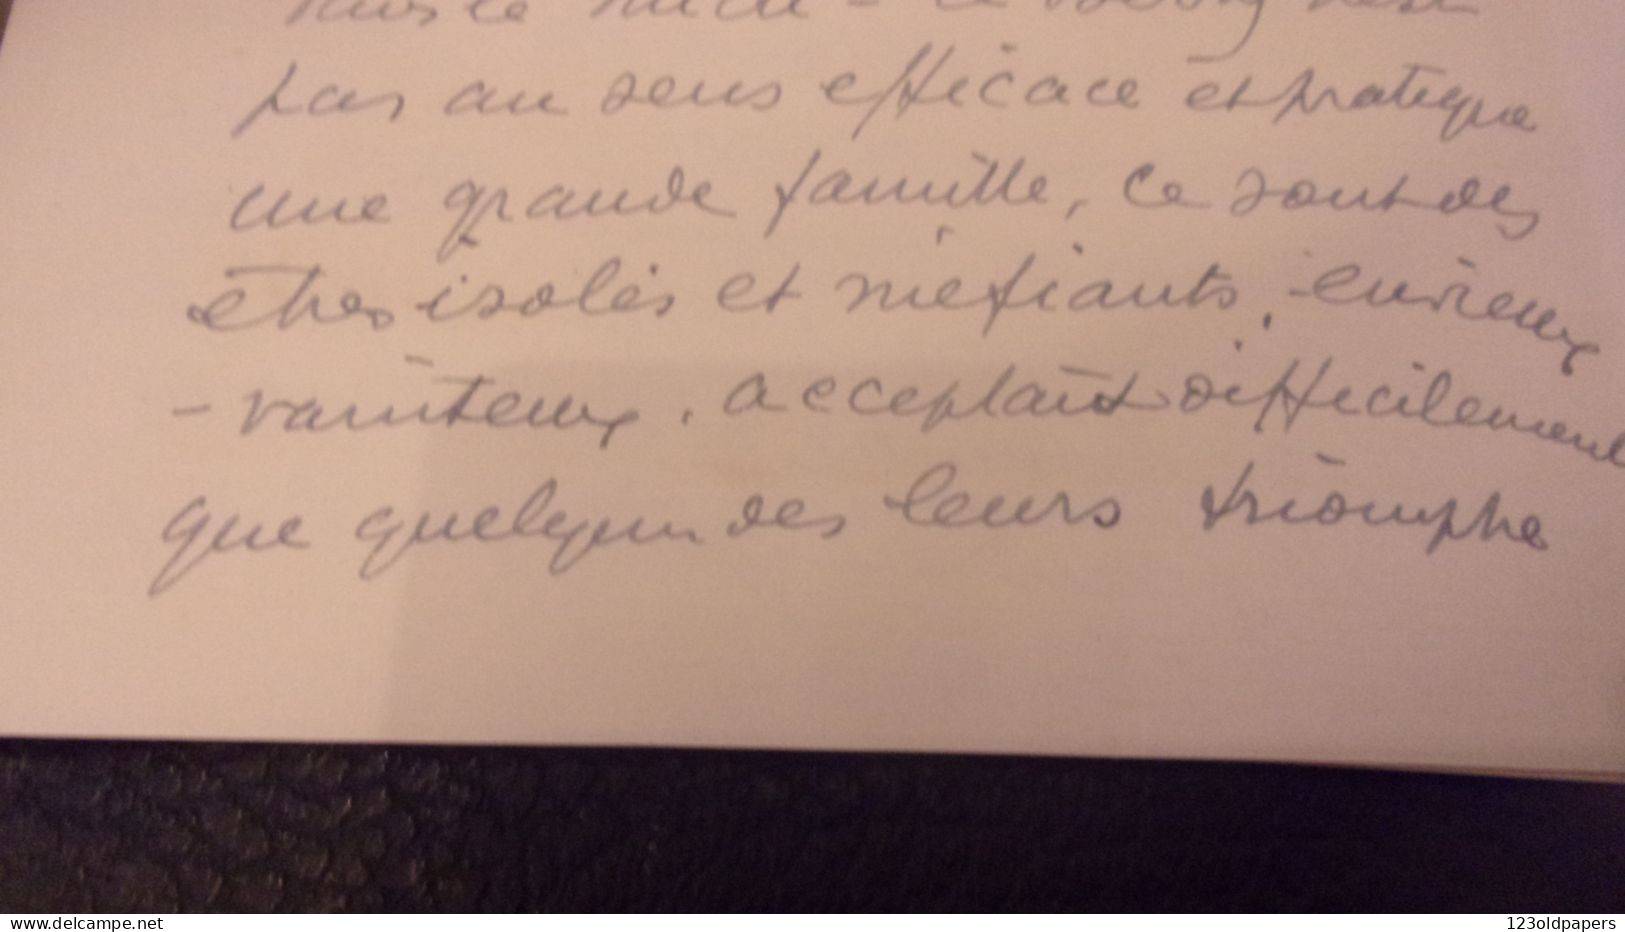 pas au sens efficace et pratique
une grande famille, ce sont des
êtres isolés et méfiants, envieux
- vaniteux. acceptant difficilement
que quelqu'un des leurs triomphe
www.delcampe.net
123oldpapers